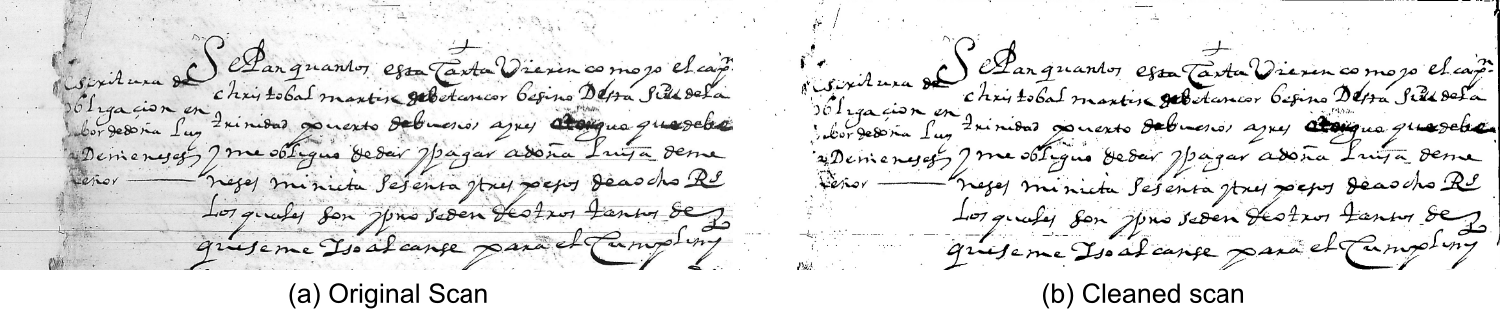 Escritura de
obligacion en
bor de doña Luy
a De meneses
señor
Se Pan quantos esta Carta Vieren como yo el capn
christobal martin de betancor besino Desta siu de la
trinidad puerto de buenos ayres otorguo que debe
y me obliguo de dar y pagar a doña Luisa de me
neses mi nieta sesenta y tres pesos de a ocho Rs
Los quales son y pro seden de otros tantos de
que se me Iso alcanse para el Cumplimy
(a) Original Scan
Escritura de
obligacion en
bor de doña Luy
a De meneses
señor
Se Pan quantos esta Carta Vieren como yo el capn
christobal martin de betancor besino Desta siu de la
trinidad puerto de buenos ayres otorguo que debe
y me obliguo de dar y pagar a doña Luisa de me
neses mi nieta sesenta y tres pesos de a ocho Rs
Los quales son y pro seden de otros tantos de
que se me Iso alcanse para el Cumplimy
(b) Cleaned scan